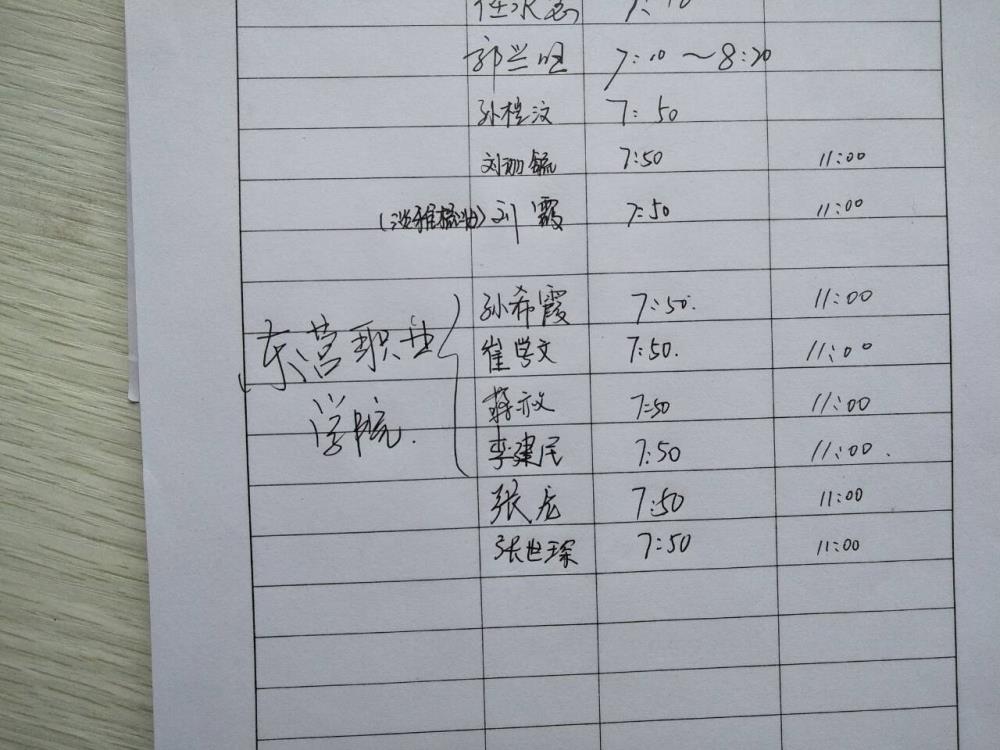 7:10~8:20
孙桂汶 7:50
7:50 11:00
刘霞 7:50 11:00
孙希霞 7:50. 11:00
崔学文 7:50. 11:00
蒋义 7:50 11:00
李建民 7:50 11:00.
张龙 7:50 11:00
张世琛 7:50 11:00
东营职业
学院.